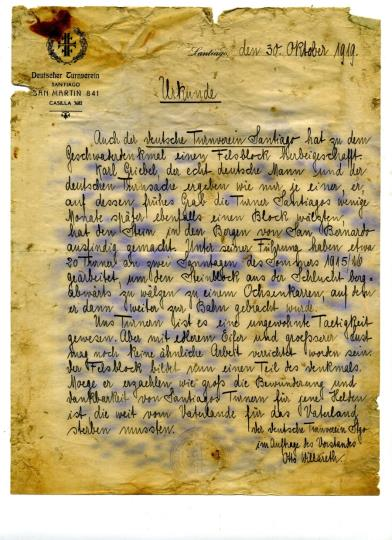 Deutscher Turnverein
SANTIAGO
SAN MARTIN 841
CASILLA
Santiago, den 30. Oktober 1919.
Urkunde
Auch der deutsche Turnverein Santiago hat zu dem
Geschwaderdenkmal einen Felsblock herbeigeschafft.
Karl Griebel der echt deutsche Mann und der
deutschen Turnsache ergeben wie nur je einer, er,
auf dessen frühes Grab die Turner Santiagos wenige
Monate später ebenfalls einen Block wälzten,
hat den Stein in den Bergen von San Bernardo
ausfindig gemacht. Unter seiner Führung haben etwa
20 Turner an zwei Sonntagen des Sommers 1915/16
gearbeitet, um den Steinblock aus der Schlucht berg-
abwärts zu wälzen zu einem Ochsenkarren, auf dem
er dann weiter zur Bahn gebracht wurde.
Uns Turnern ist es eine ungewohnte Taetigkeit
gewesen. Aber mit Eifer und groesserer Lust
mag noch keine ähnliche Arbeit verrichtet worden sein.
Der Felsblock bildet nun einen Teil des Denkmals.
Moege er erzählen wie groß die Bewunderung und
Dankbarkeit von Santiagos Turnern für jene Helden
ist, die weit vom Vaterlande für das Vaterland
sterben mussten.
Der deutsche Turnverein Stgo
im Auftrage des Vorstandes
Otto